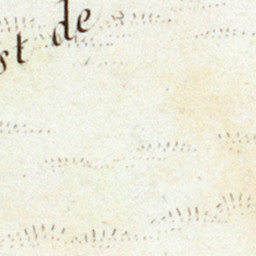 st de